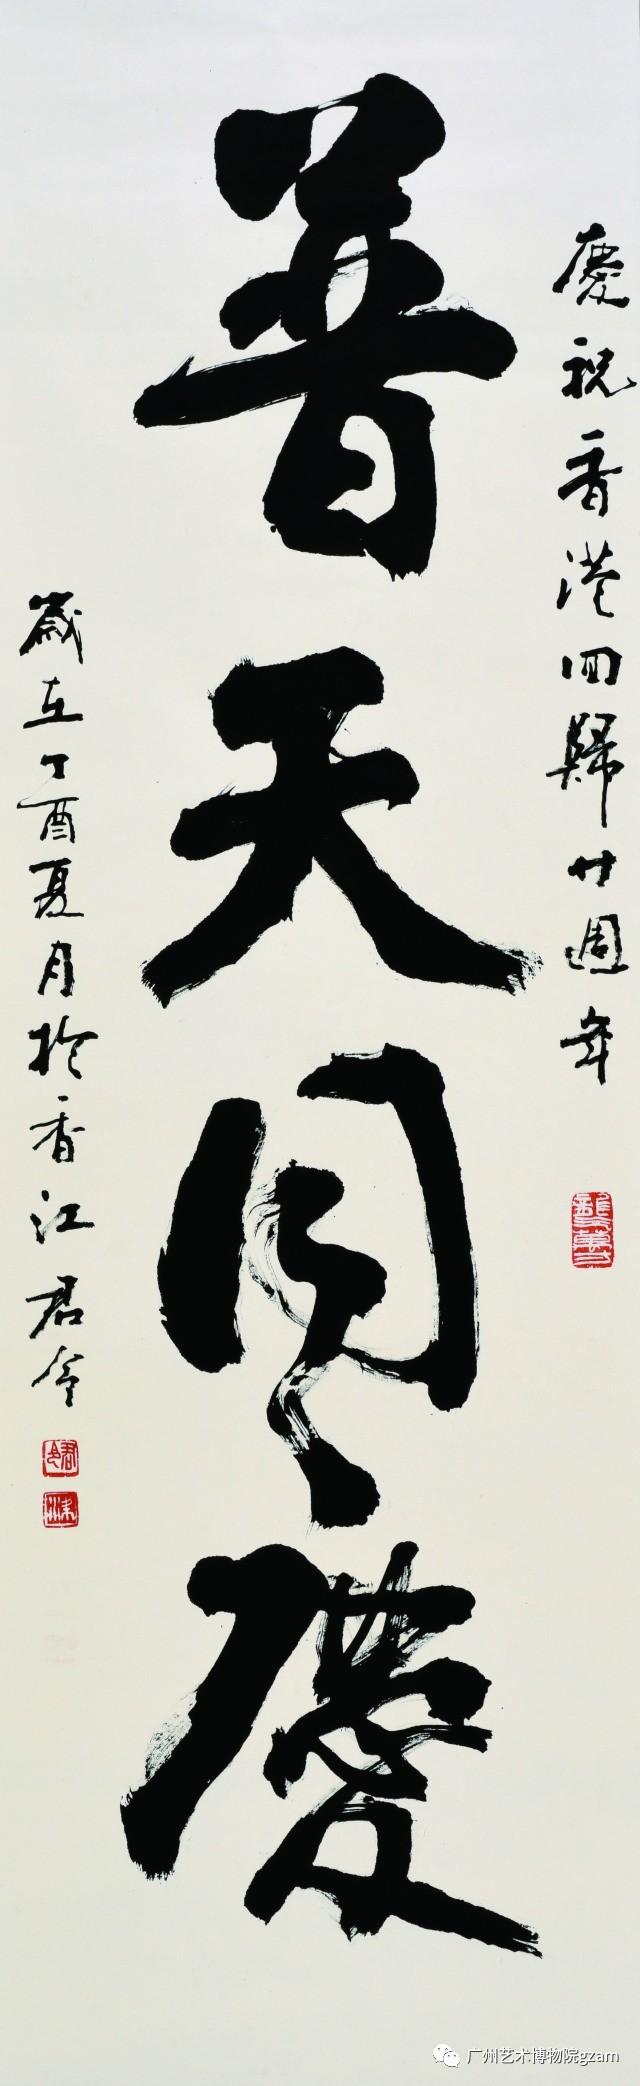 慶祝香港回歸廿週年
普天同慶
歲在丁酉夏月於香江君令
广州艺术博物院gzam